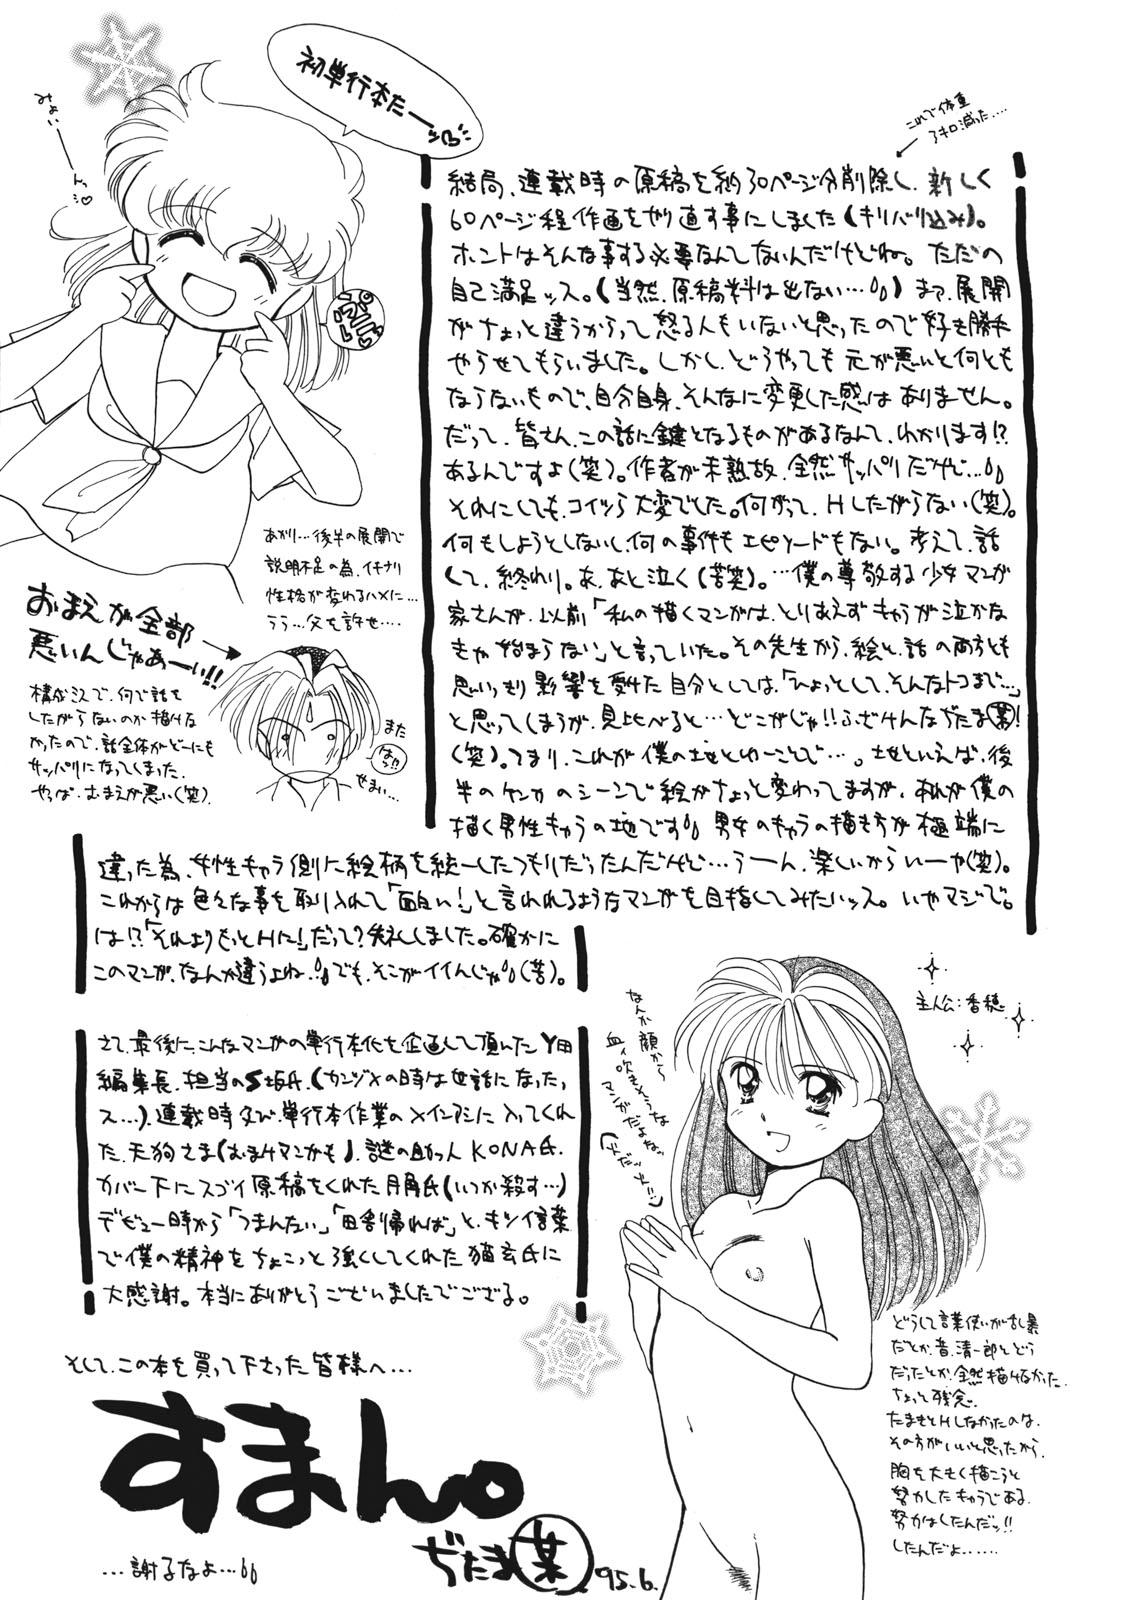 初単行本だー
みょいーんっ
ぷにぷに
これで体重
1キロ減った‥‥
結局、連載時の原稿を約30ページ分削除し、新しく
60ページ程作画をやり直す事にしました(キリバリ込み)。
ホントはそんな事する必要なんてないんだけどね。ただの
自己満足ッス。(当然、原稿料は出ない…)まァ、展開
がちょっと違うからって怒る人もいないと思ったので好き勝手
やらせてもらいました。しかし、どうやっても元が悪いと何とも
ならないもので、自分自身、そんなに変更した感はありません。
だって、皆さん、この話に鍵となるものがあるなんて、わかります!?
あるんですよ(笑)。作者が未熟故、全然サッパリだけど…
それにしても、コイツら大変でした。何がって、Hしたがらない(笑)。
何もしようとしないし、何の事件もエピソードもない。考えて、話
して、終わり。あ、あと泣く(苦笑)。…僕の尊敬する少女マンガ
家さんが、以前「私の描くマンガは、とりあえずキャラが泣かな
きゃ始まらない」と言っていた。その先生から、絵と、話の両方とも
思いっきり影響を受けた自分としては、「ひょっとして、そんなトコまで…」
と思ってしまうが、見比べると…どこがじゃ!!ふざけんなぢたま某!
(笑)。つまり、これが僕の地とゆーことで…。地といえば、後
半のケンカのシーンで絵がちょっと変わってますが、あれが僕の
描く男性キャラの地です。男女のキャラの描き方が極端に
違った為、女性キャラ側に絵柄を統一したつもりだったんだけど…うーん、楽しいからいーや(笑)。
これからは色々な事を取り入れて「面白い!」と言われるようなマンガを目指してみたいッス。いやマジで。
は!?「それよりもっとHに!」だって?失礼しました。確かに
このマンガ、なんか違うよね…でも、そこがイイんじゃ(苦)。
あかり…後半の展開で
説明不足の為、イキナリ
性格が変わるハメに…
うう…父を許せ‥‥
おまえが全部
悪いんじゃあーい!!
構成ミスで、何で話を
したがらないのか描けな
かったので、話全体がどーにも
サッパリになってしまった。
やっぱ、おまえが悪い(笑)。
また
はっ!!
せまい…
さて、最後に、こんなマンガの単行本化を企画して頂いたY田
編集長、担当のS坂氏、(カンヅメの時は世話になったっ
ス…)、連載時及び、単行本作業のメインアシに入ってくれ
た、天狗さま(おまけマンガも)、謎の助っ人KONA氏、
カバー下にスゴイ原稿をくれた月角氏(いつか殺す…)
デビュー時から「つまんない」「田舎帰れば」と、キツイ言葉
で僕の精神をちょこっと強くしてくれた猫玄氏に
大感謝。本当にありがとうございましたでござる。
主人公:香穂
なんか顔から
血ィ吹きそうな
マンガだよな。
どうして言葉使いが乱暴
だとか、昔、清一郎とどう
だったとか、全然描けなかった。
ちょっと残念。
たまきとHしなかったのは、
その方がいいと思ったから。
胸を大きく描こうと
努力したキャラである。
努力はしたんだッ!!
したんだよ‥‥‥
そして、この本を買って下さった皆様へ…
すまん。
ぢたま某 95.6.
…謝るなよ…